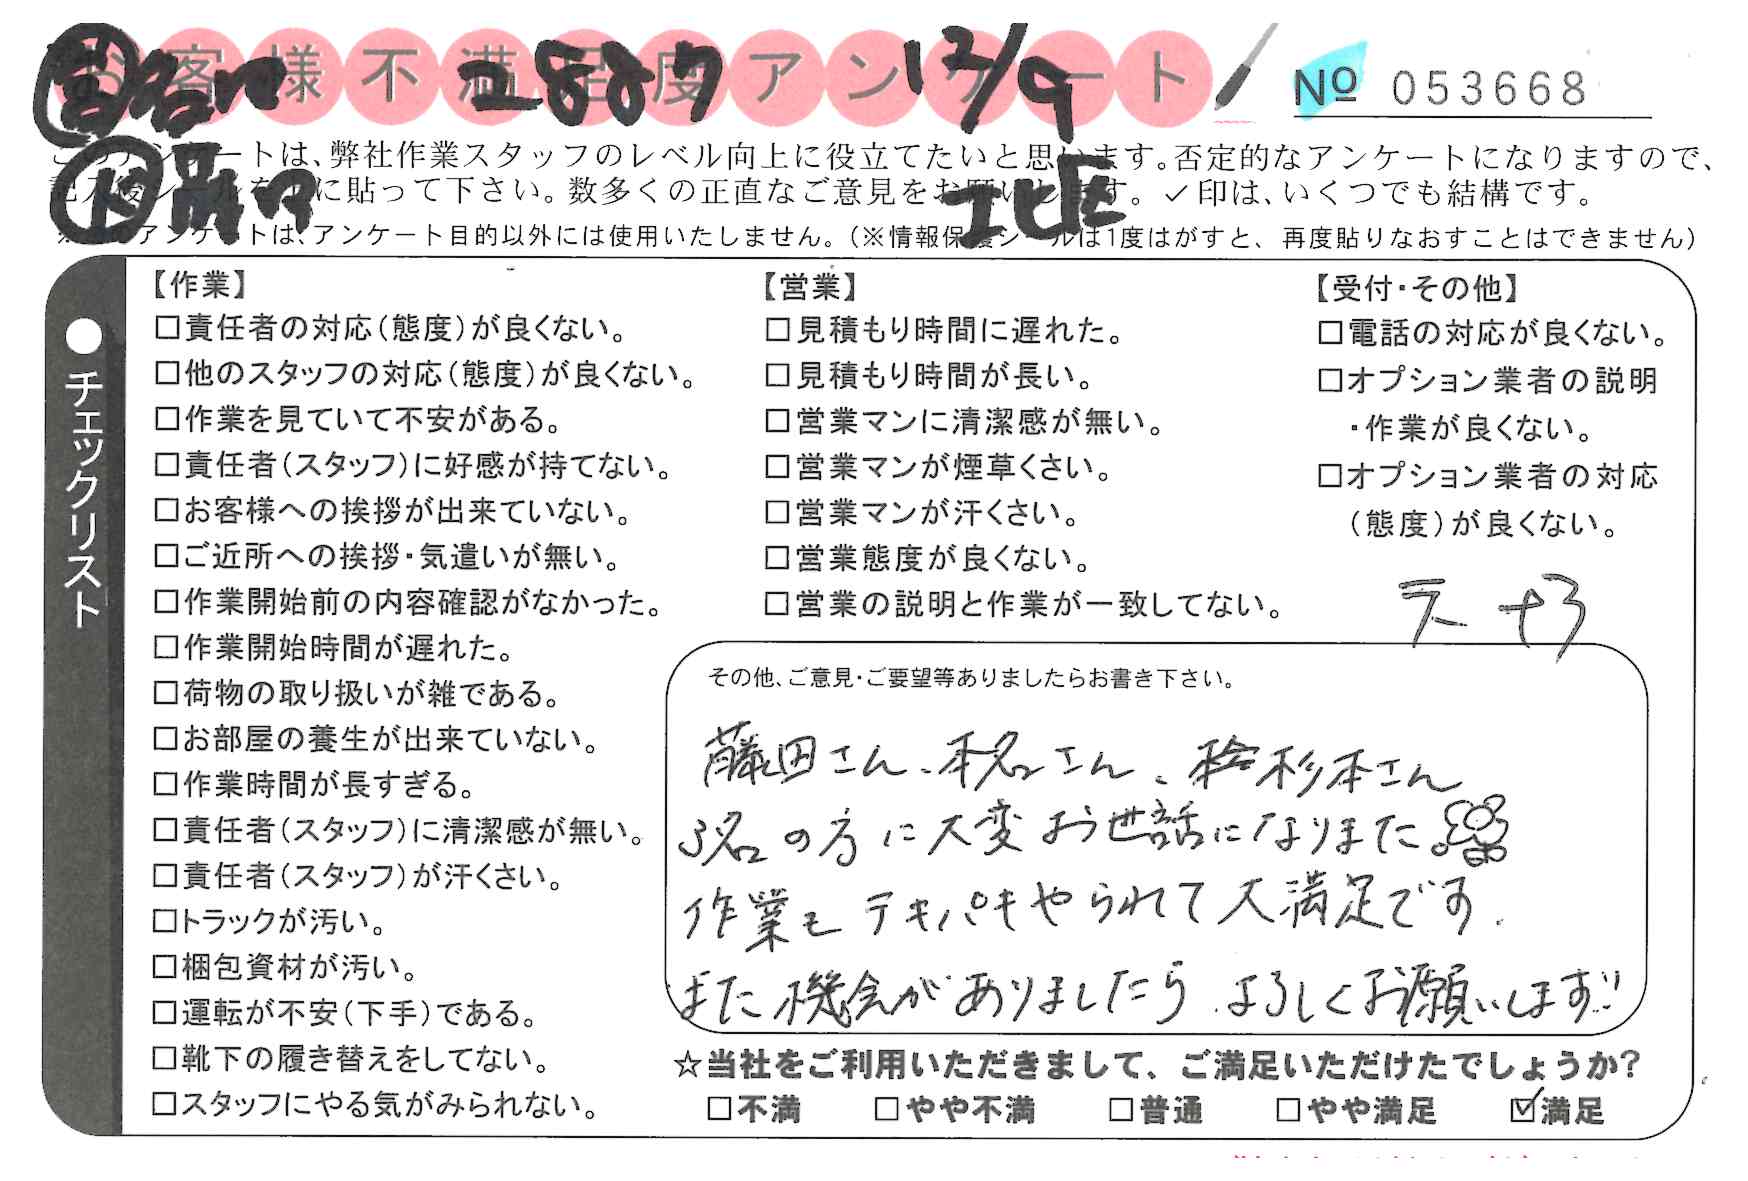 お客様不満足度アンケート
2887
12/9
№ 053668
このアンケートは、弊社作業スタッフのレベル向上に役立てたいと思います。否定的なアンケートになりますので、
記入後シールを に貼って下さい。数多くの正直なご意見をお願いします。✓印は、いくつでも結構です。
北区
※ アンケートは、アンケート目的以外には使用いたしません。(※情報保護シールは1度はがすと、再度貼りなおすことはできません)
●チェックリスト
【作業】
□責任者の対応(態度)が良くない。
□他のスタッフの対応(態度)が良くない。
□作業を見ていて不安がある。
□責任者(スタッフ)に好感が持てない。
□お客様への挨拶が出来ていない。
□ご近所への挨拶・気遣いが無い。
□作業開始前の内容確認がなかった。
□作業開始時間が遅れた。
□荷物の取り扱いが雑である。
□お部屋の養生が出来ていない。
□作業時間が長すぎる。
□責任者(スタッフ)に清潔感が無い。
□責任者(スタッフ)が汗くさい。
□トラックが汚い。
□梱包資材が汚い。
□運転が不安(下手)である。
□靴下の履き替えをしてない。
□スタッフにやる気がみられない。
【営業】
□見積もり時間に遅れた。
□見積もり時間が長い。
□営業マンに清潔感が無い。
□営業マンが煙草くさい。
□営業マンが汗くさい。
□営業態度が良くない。
□営業の説明と作業が一致してない。
【受付・その他】
□電話の対応が良くない。
□オプション業者の説明
・作業が良くない。
□オプション業者の対応
(態度)が良くない。
その他、ご意見・ご要望等ありましたらお書き下さい。
藤田さん、本名さん、杉本さん
3名の方に大変お世話になりました
作業もテキパキやられて大満足です.
また機会がありましたら よろしくお願いします!!
☆当社をご利用いただきまして、ご満足いただけたでしょうか?
□不満 □やや不満 □普通 □やや満足 ☑満足